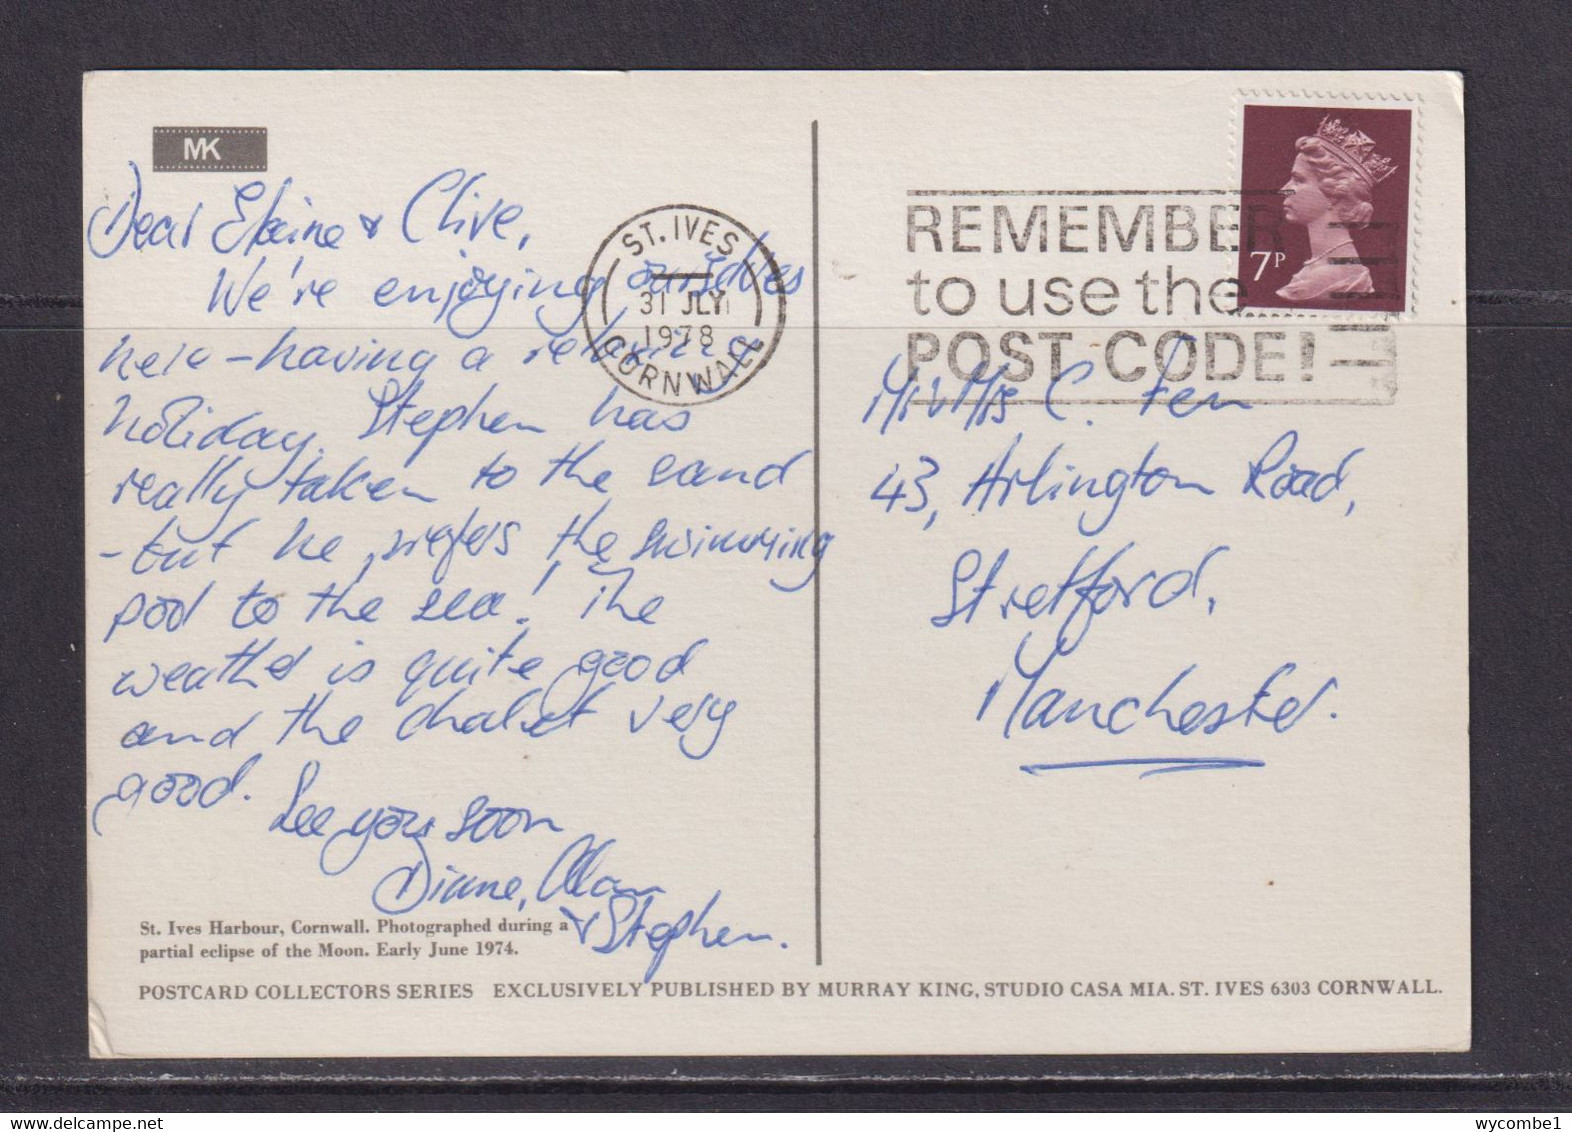 MK
Dear Elaine & Clive,
We're enjoying ourselves
here - having a relaxing
holiday. Stephen has
really taken to the sand
- but he prefers the swimming
pool to the sea! The
weather is quite good
and the chalet very
good.
See you soon
Diane, Alan
& Stephen.
St. Ives Harbour, Cornwall. Photographed during a
partial eclipse of the Moon. Early June 1974.
POSTCARD COLLECTORS SERIES EXCLUSIVELY PUBLISHED BY MURRAY KING, STUDIO CASA MIA. ST. IVES 6303 CORNWALL.
ST. IVES
31 JLY
1978
CORNWALL
REMEMBER
to use the
POST CODE!
7P
Mr & Mrs C. Fern
43, Arlington Road,
Stretford,
Manchester.
wycombe1